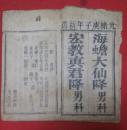 光緒庚子年新鐫
海蟾大仙降男科
宏教真君降男科